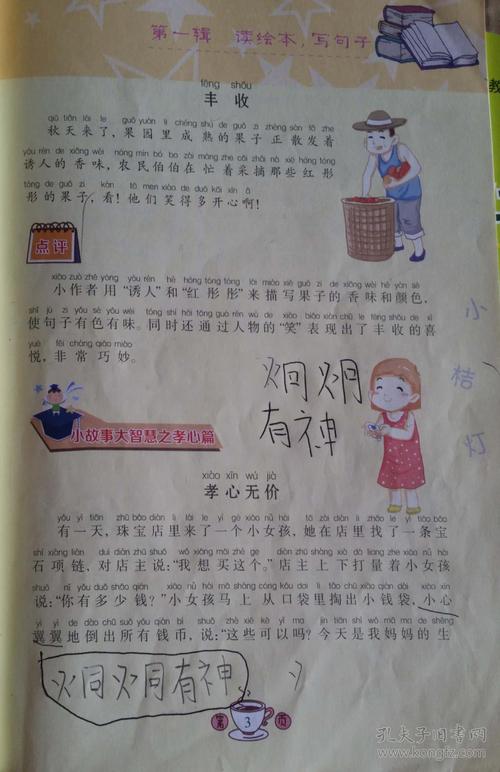 第一辑 读绘本,写句子
fēng shōu
丰 收
qiū tiān lái le guǒ yuán lǐ chéng shú de guǒ zi zhèng sàn fā zhe
秋天来了,果园里成熟的果子正散发着
yòu rén de xiāng wèi nóng mín bó bo zài máng zhe cǎi zhāi nà xiē hóng tóng
诱人的香味,农民伯伯在忙着采摘那些红彤
tóng de guǒ zi kàn tā men xiào de duō kāi xīn a
彤的果子,看!他们笑得多开心啊!
点评
xiǎo zuò zhě yòng yòu rén hé hóng tóng tóng lái miáo xiě guǒ zi de xiāng wèi hé yán sè
小作者用“诱人”和“红彤彤”来描写果子的香味和颜色,
shǐ jù zi yǒu sè yǒu wèi tóng shí hái tōng guò rén wù de xiào biǎo xiàn chū le fēng shōu de xǐ
使句子有色有味。同时还通过人物的“笑”表现出了丰收的喜
yuè fēi cháng qiǎo miào
悦,非常巧妙。
小
桔
灯
炯炯
有神
小故事大智慧之孝心篇
xiào xīn wú jià
孝心无价
yǒu yì tiān zhū bǎo diàn lǐ lái le yí gè xiǎo nǚ hái tā zài diàn lǐ zhǎo le yì tiáo bǎo
有一天,珠宝店里来了一个小女孩,她在店里找了一条宝
shí xiàng liàn duì diàn zhǔ shuō wǒ xiǎng mǎi zhè ge diàn zhǔ shàng xià dǎ liang zhe xiǎo nǚ hái
石项链,对店主说:“我想买这个。”店主上下打量着小女孩
shuō nǐ yǒu duō shǎo qián xiǎo nǚ hái mǎ shàng cóng kǒu dai lǐ tāo chū xiǎo qián dài xiǎo xīn
说:“你有多少钱?”小女孩马上从口袋里掏出小钱袋,小心
yì yì de dào chū suǒ yǒu qián bì shuō zhè xiē kě yǐ ma jīn tiān shì wǒ mā ma de shēng
翼翼地倒出所有钱币,说:“这些可以吗?今天是我妈妈的生
炯炯有神
第 3 页
孔夫子旧书网
www.kongfz.com